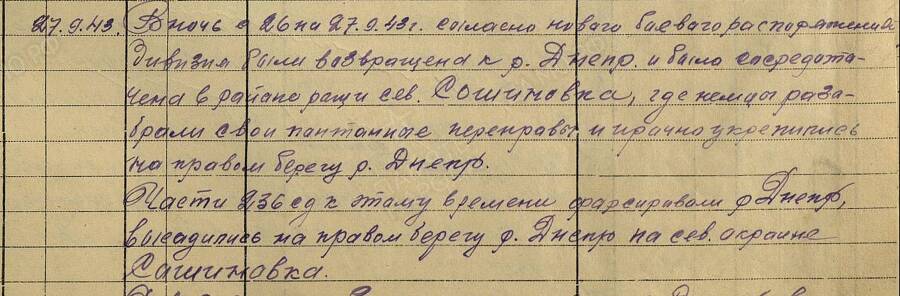 27.9.43. В ночь с 26 на 27.9.43г. согласно нового боевого распоряжения
дивизия были возвращена к р. Днепр. и было сосредото-
чена в районе рощи сев. Сошиновка, где немцы разо-
брали свои понтонные переправы и прочно укрепились
на правом берегу р. Днепр.
Части 236 сд к этому времени форсировали р Днепр,
высадились на правом берегу р. Днепр на сев. окраине
Сошиновка.